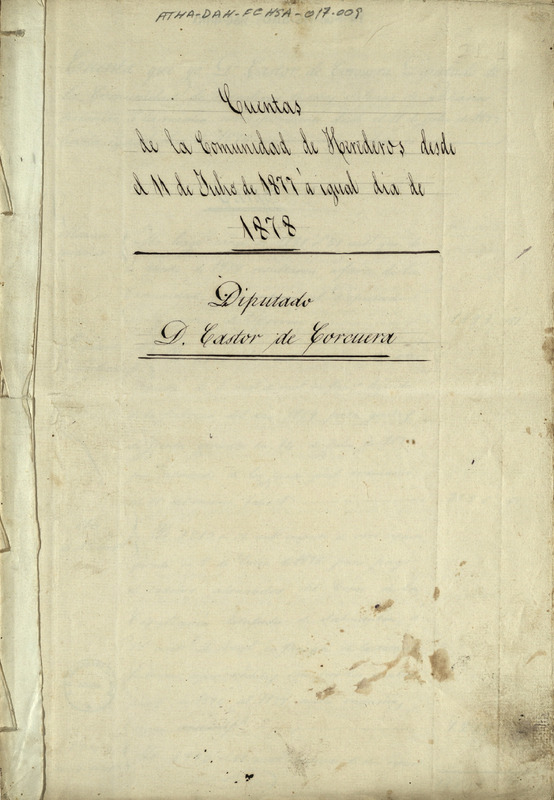 ATHA-DAH-FCHSA-017.009
Cuentas
de la Comunidad de Herederos desde
el 11 de Julio de 1877 á igual dia de
1878
Diputado
D. Castor de Corcuera